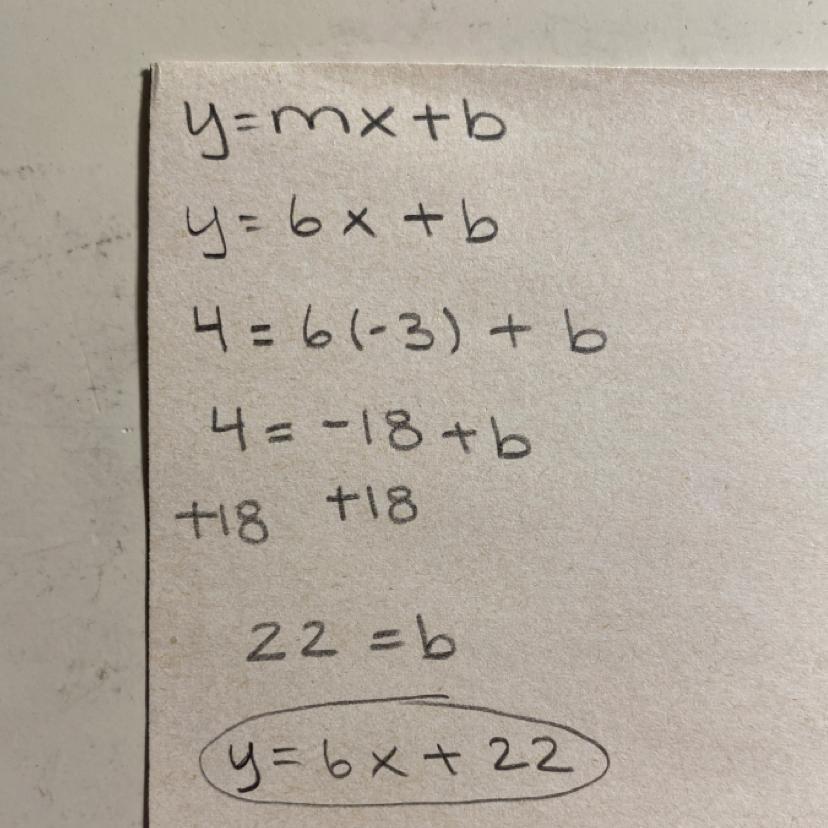 y=mx+b
y=6x+b
4=6(-3)+b
4=-18+b
+18 +18
22=b
y=6x+22